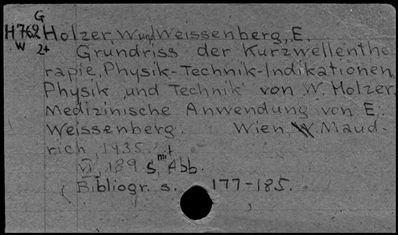 G
H762 Holzer, W und Weissenberg, E.
W 2+ Grundriss der Kurzwellenthe
rapie, Physik-Technik-Indikationen.
Physik und Technik von W. Holzer.
Medizinische Anwendung von E.
Weissenberg. Wien, W. Maud-
rich 1935.
VI, 189 S. m. Abb.
(Bibliogr. s. 177-185.